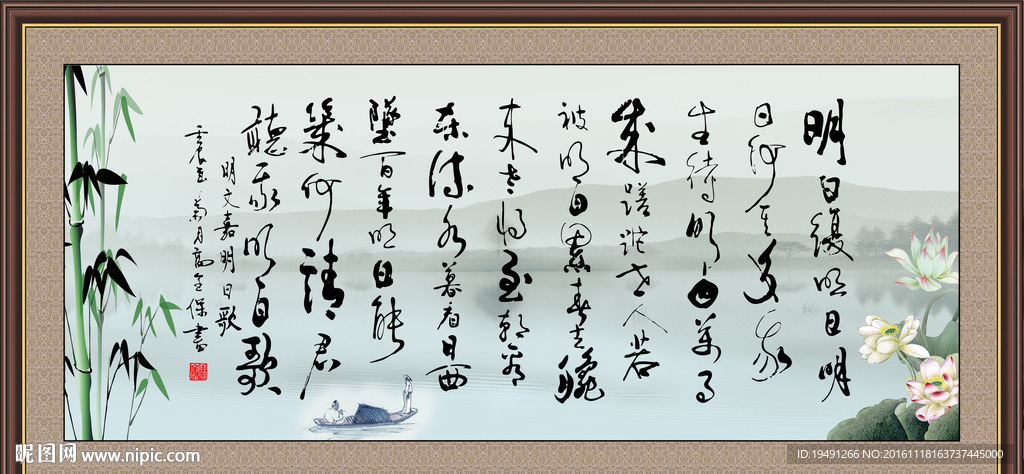 明日複明日明
日何其多我
生待明日萬事
成蹉跎世人若
被明日累春去龝
来老将至朝看
东流水暮看日西
墜百年明日能
幾何請君
聽我明日歌
明文嘉明日歌
菊月高保書
昵图网 www.nipic.com
ID:19491266 NO:20161118163737445000